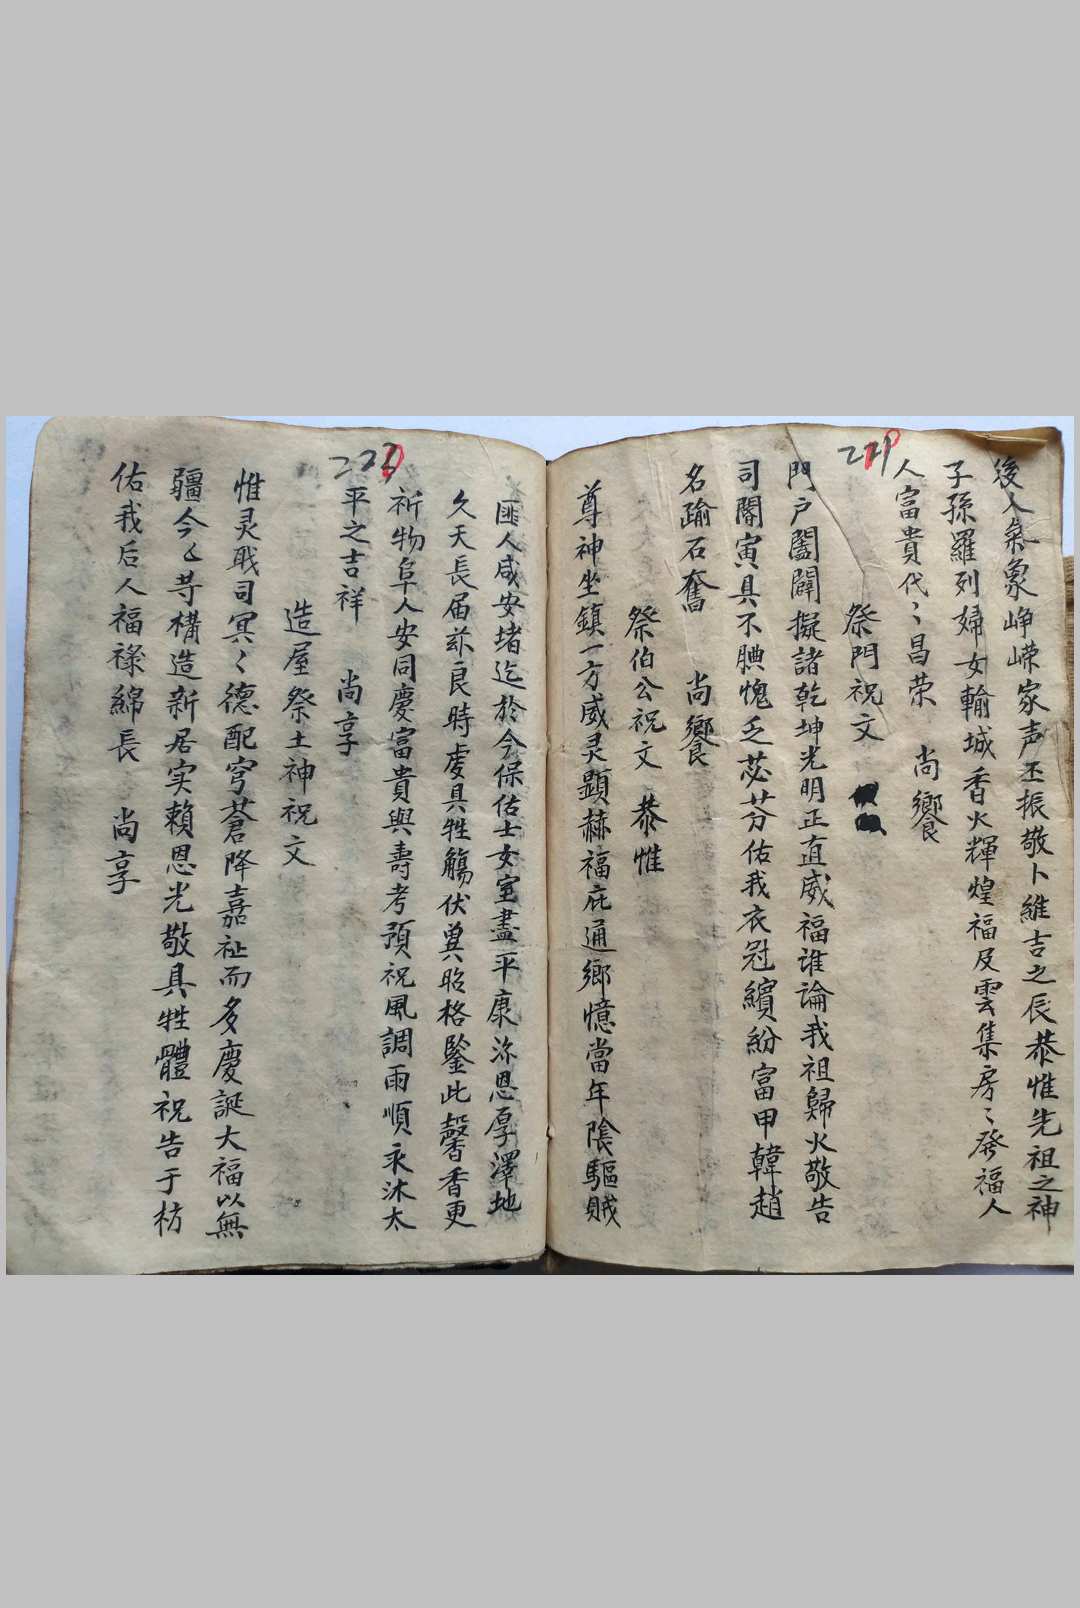 221
後人氣象峥嵘家声丕振敬卜維吉之辰恭惟先祖之神
子孫羅列婦女輸城香火輝煌福及雲集房〻發福人
人富貴代〻昌荣 尚饗
祭門祝文
門户闔闢擬諸乾坤光明正直威福誰論我祖歸火敬告
司閽寅具不腆愧乏苾芬佑我衣冠繽紛富甲韓趙
名踰石奮 尚饗
祭伯公祝文 恭惟
尊神坐鎮一方威灵顯赫福庇通鄉憶當年陰驅賊
匪人咸安堵迄於今保佑士女室盡平康沵恩厚澤地
久天長届兹良時虔具牲觴伏兾昭格鑒此馨香更
祈物阜人安同慶富貴與壽考預祝風調雨順永沐太
平之吉祥 尚享
造屋祭土神祝文
惟灵戢司冥〻德配穹蒼降嘉祉而多慶誕大福以無
疆今等構造新居实賴恩光敬具牲體祝告于枋
佑我后人福祿綿長 尚享